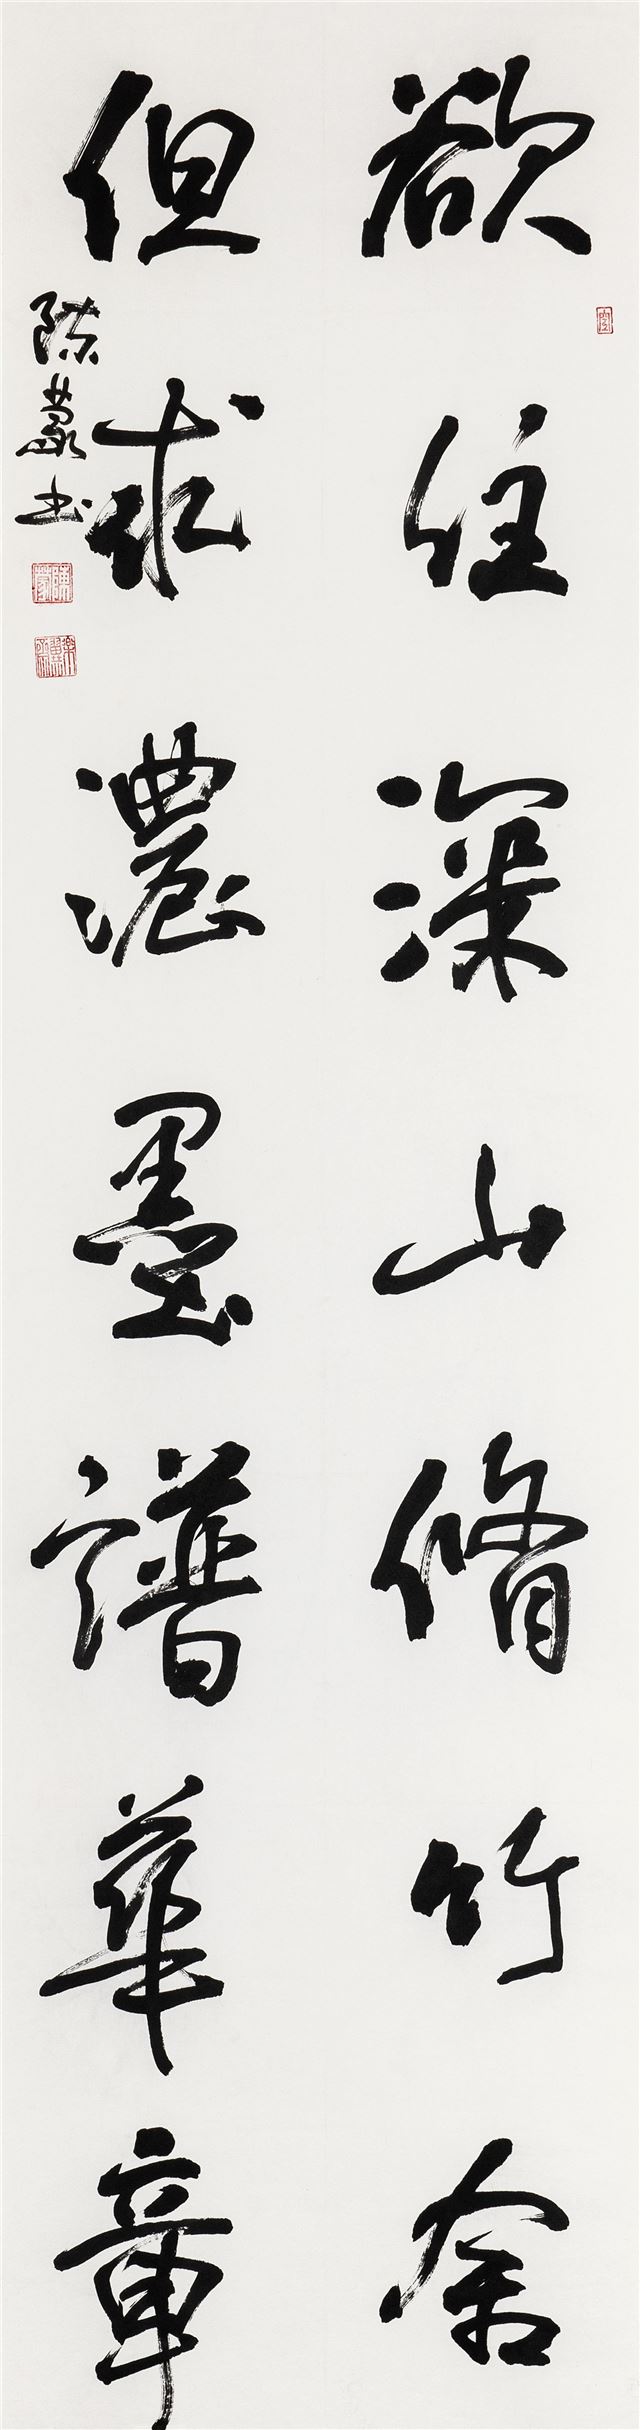 欲住深山脩竹舍
但求濃墨譜華章
陈蒙书